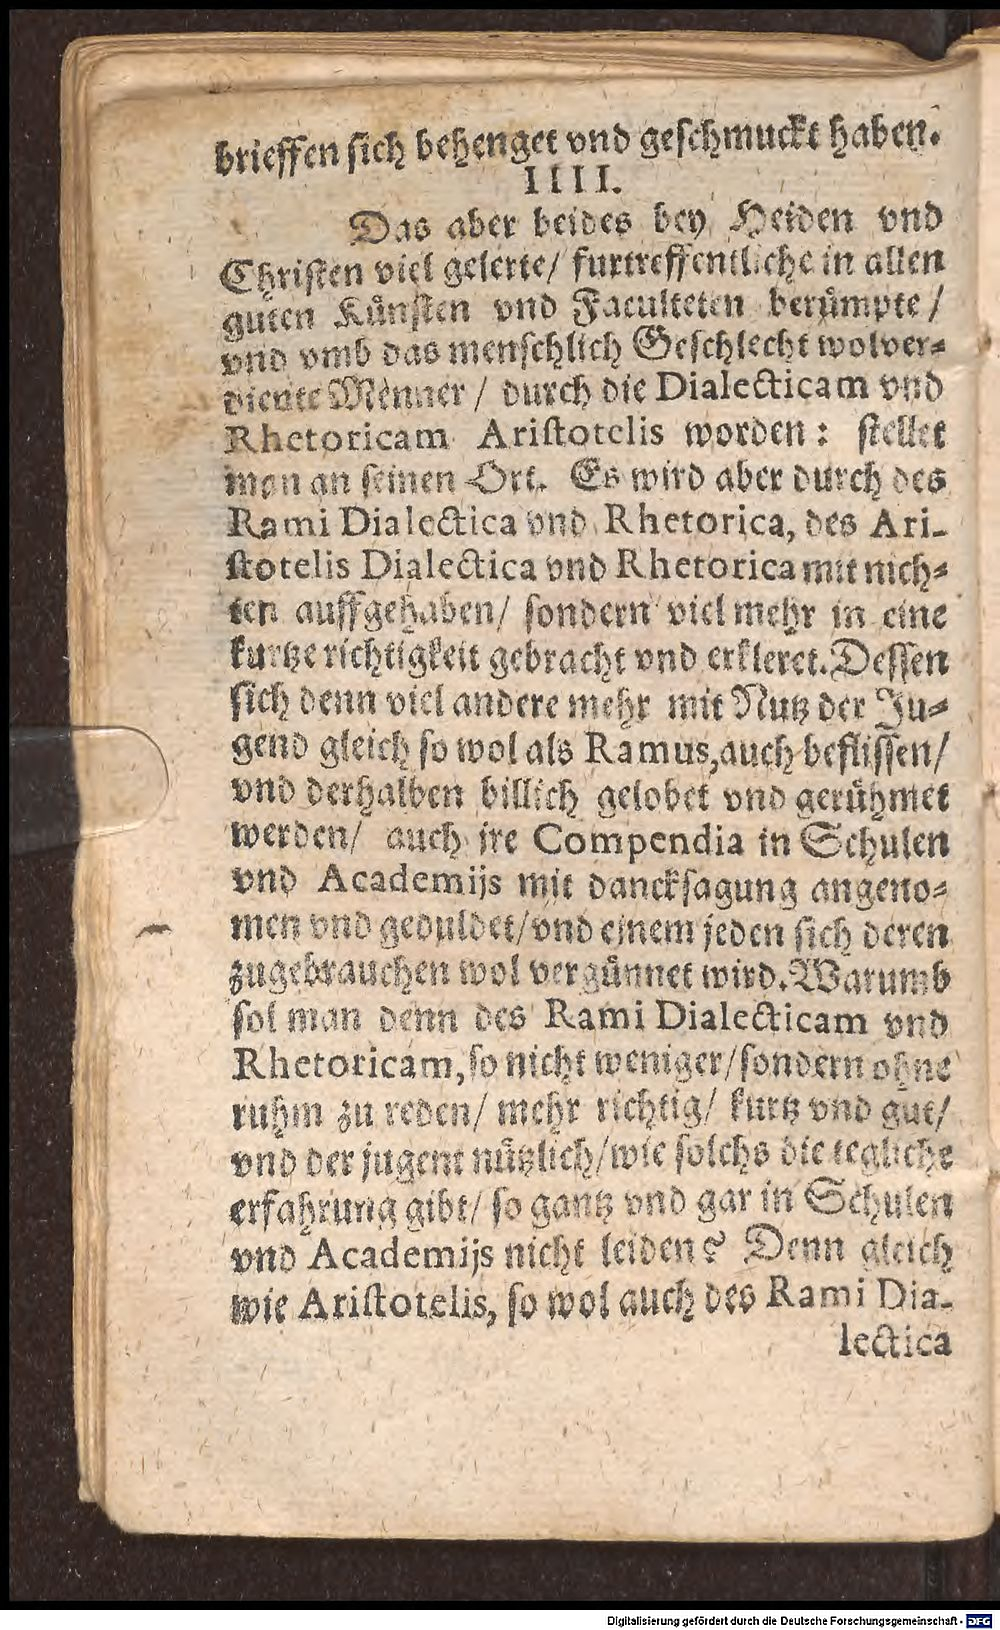 brieffen sich behenget vnd geschmuckt haben.
IIII.
Das aber beides bey Heiden vnd
Christen viel gelerte/ furtreffentliche in allen
guten Künsten vnd Faculteten berümpte/
vnd vmb das menschlich Geschlecht wolver-
diente Menner/ durch die Dialecticam vnd
Rhetoricam Aristotelis worden: stellet
man an seinen Ort. Es wird aber durch des
Rami Dialectica vnd Rhetorica, des Ari-
stotelis Dialectica vnd Rhetorica mit nich-
ten auffgehaben/ sondern viel mehr in eine
kurtze richtigkeit gebracht vnd erkleret. Dessen
sich denn viel andere mehr mit Nutz der Ju-
gend gleich so wol als Ramus, auch beflissen/
vnd derhalben billich gelobet vnd gerühmet
werden/ auch jre Compendia in Schulen
vnd Academijs mit dancksagung angeno-
men vnd geduldet/ vnd einem jeden sich deren
zugebrauchen wol vergünnet wird. Warumb
sol man denn des Rami Dialecticam vnd
Rhetoricam, so nicht weniger/ sondern ohne
ruhm zu reden/ mehr richtig/ kurtz vnd gut/
vnd der jugent nützlich/ wie solchs die tegliche
erfahrung gibt/ so gantz vnd gar in Schulen
vnd Academijs nicht leiden? Denn gleich
wie Aristotelis, so wol auch des Rami Dia-
lectica
Digitalisierung gefördert durch die Deutsche Forschungsgemeinschaft - DFG